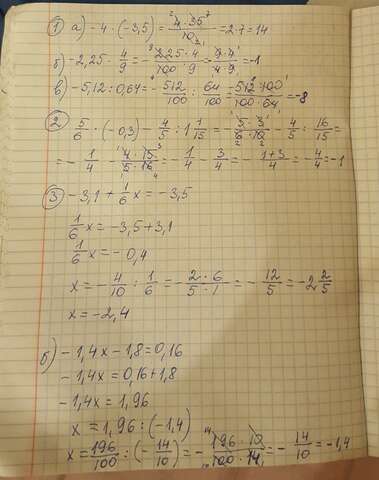 ① а) -4 · (-3,5) = 4·35/10 = 2·7 = 14
б) -2,25 · 4/9 = - 225·4/100·9 = - 9·4/4·9 = -1
в) -5,12 : 0,64 = - 512/100 : 64/100 = 512·100/100·64 = -8
② 5/6 · (-0,3) - 4/5 : 1 1/15 = - 5·3/6·10 - 4/5 : 16/15 =
= - 1/4 - 4·15/5·16 = - 1/4 - 3/4 = - 1+3/4 = - 4/4 = -1
③ -3,1 + 1/6 x = -3,5
1/6 x = -3,5+3,1
1/6 x = -0,4
x = - 4/10 : 1/6 = - 2·6/5·1 = - 12/5 = -2 2/5
x = -2,4
б) -1,4x - 1,8 = 0,16
-1,4x = 0,16+1,8
-1,4x = 1,96
x = 1,96 : (-1,4)
x = 196/100 : (- 14/10) = - 196·10/100·14 = - 14/10 = -1,4